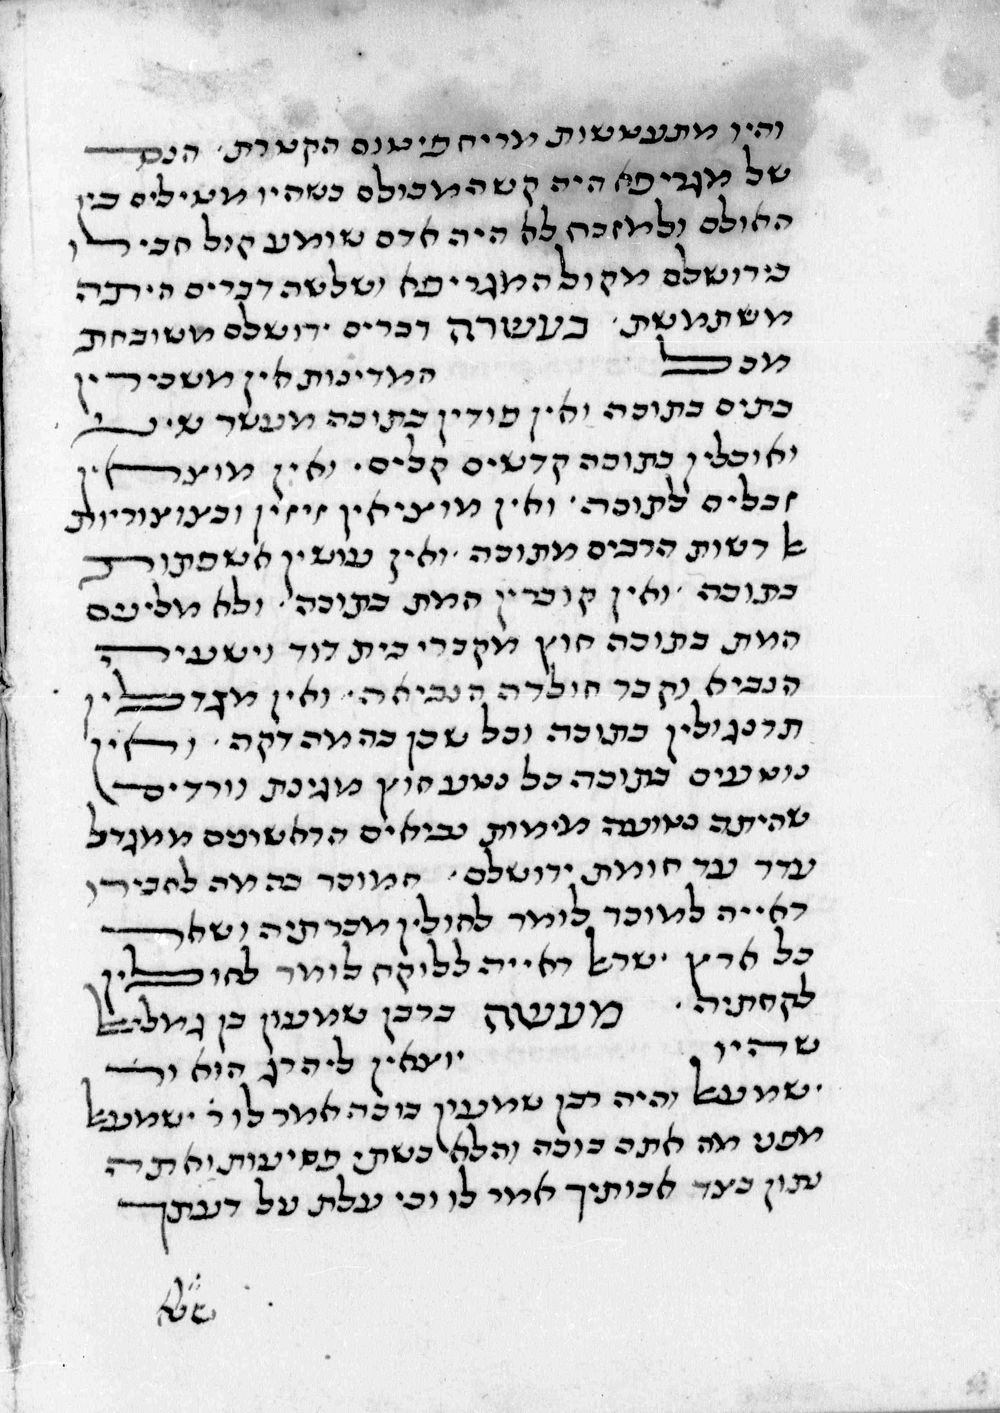 והיו מתעטשות מריח פיטום הקטרת. הנס
של מגריפא היה קשה מכולם כשהיו מטילים בין
האולם ולמזבח לא היה אדם שומע קול חבירו
בירושלם מקול המגריפא ושלשה דברים היתה
משתמשת. בעשרה דברים ירושלם משובחת
מכל המדינות אין משכירין
בתים בתוכה ואין פודין בתוכה מעשר שני
ואוכלין בתוכה קדשים קלים. ואין מוצאין
זבלים לתוכה. ואין מוציאין זיזין וגצוצוריות
לרשות הרבים מתוכה. ואין עושין אשפתות
בתוכה. ואין קוברין המת בתוכה. ולא מלינים
המת בתוכה חוץ מקברי בית דוד וישעיה
הנביא וקבר חולדה הנביאה. ואין מגדלין
תרנגולין בתוכה וכל שכן בהמה דקה. ואין
נוטעים בתוכה כל נטע חוץ מגינת וורדים
שהיתה נטועה מימות נביאים הראשונים ממגדל
עדר עד חומת ירושלם. המוכר בהמה לחבירו
ראייה למוכר לומר לחולין מכרתיה ושאר
כל ארץ ישראל ראייה ללוקח לומר לחולין
לקחתיה. מעשה ברבן שמעון בן גמליאל
שהיו יוצאין ליהרג הוא ור׳
ישמעאל והיה רבן שמעון בוכה אמר לו ר׳ ישמעאל
מפני מה אתה בוכה והלא בשתי פסיעות ואתה
נתון בצד אבותיך אמר לו וכי עלת על דעתך